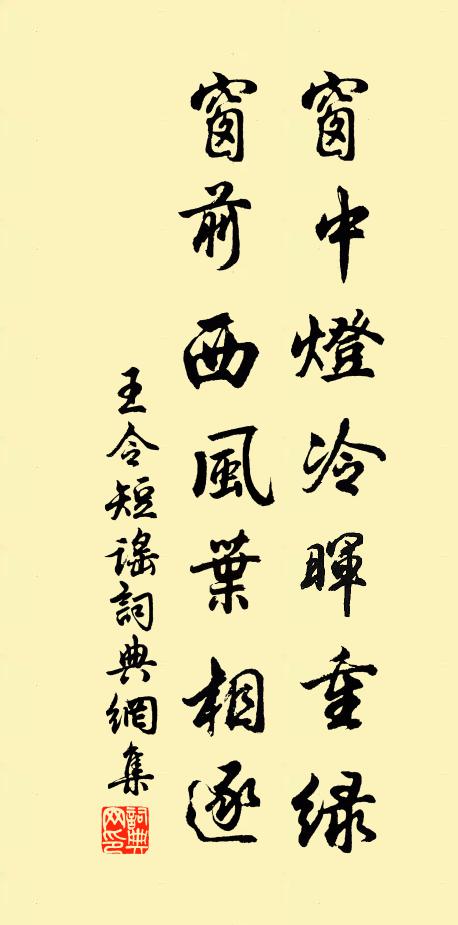 窗中燈冷暉重綠
窗前西風葉相逐
王令短謠詞典網集
詞典網印